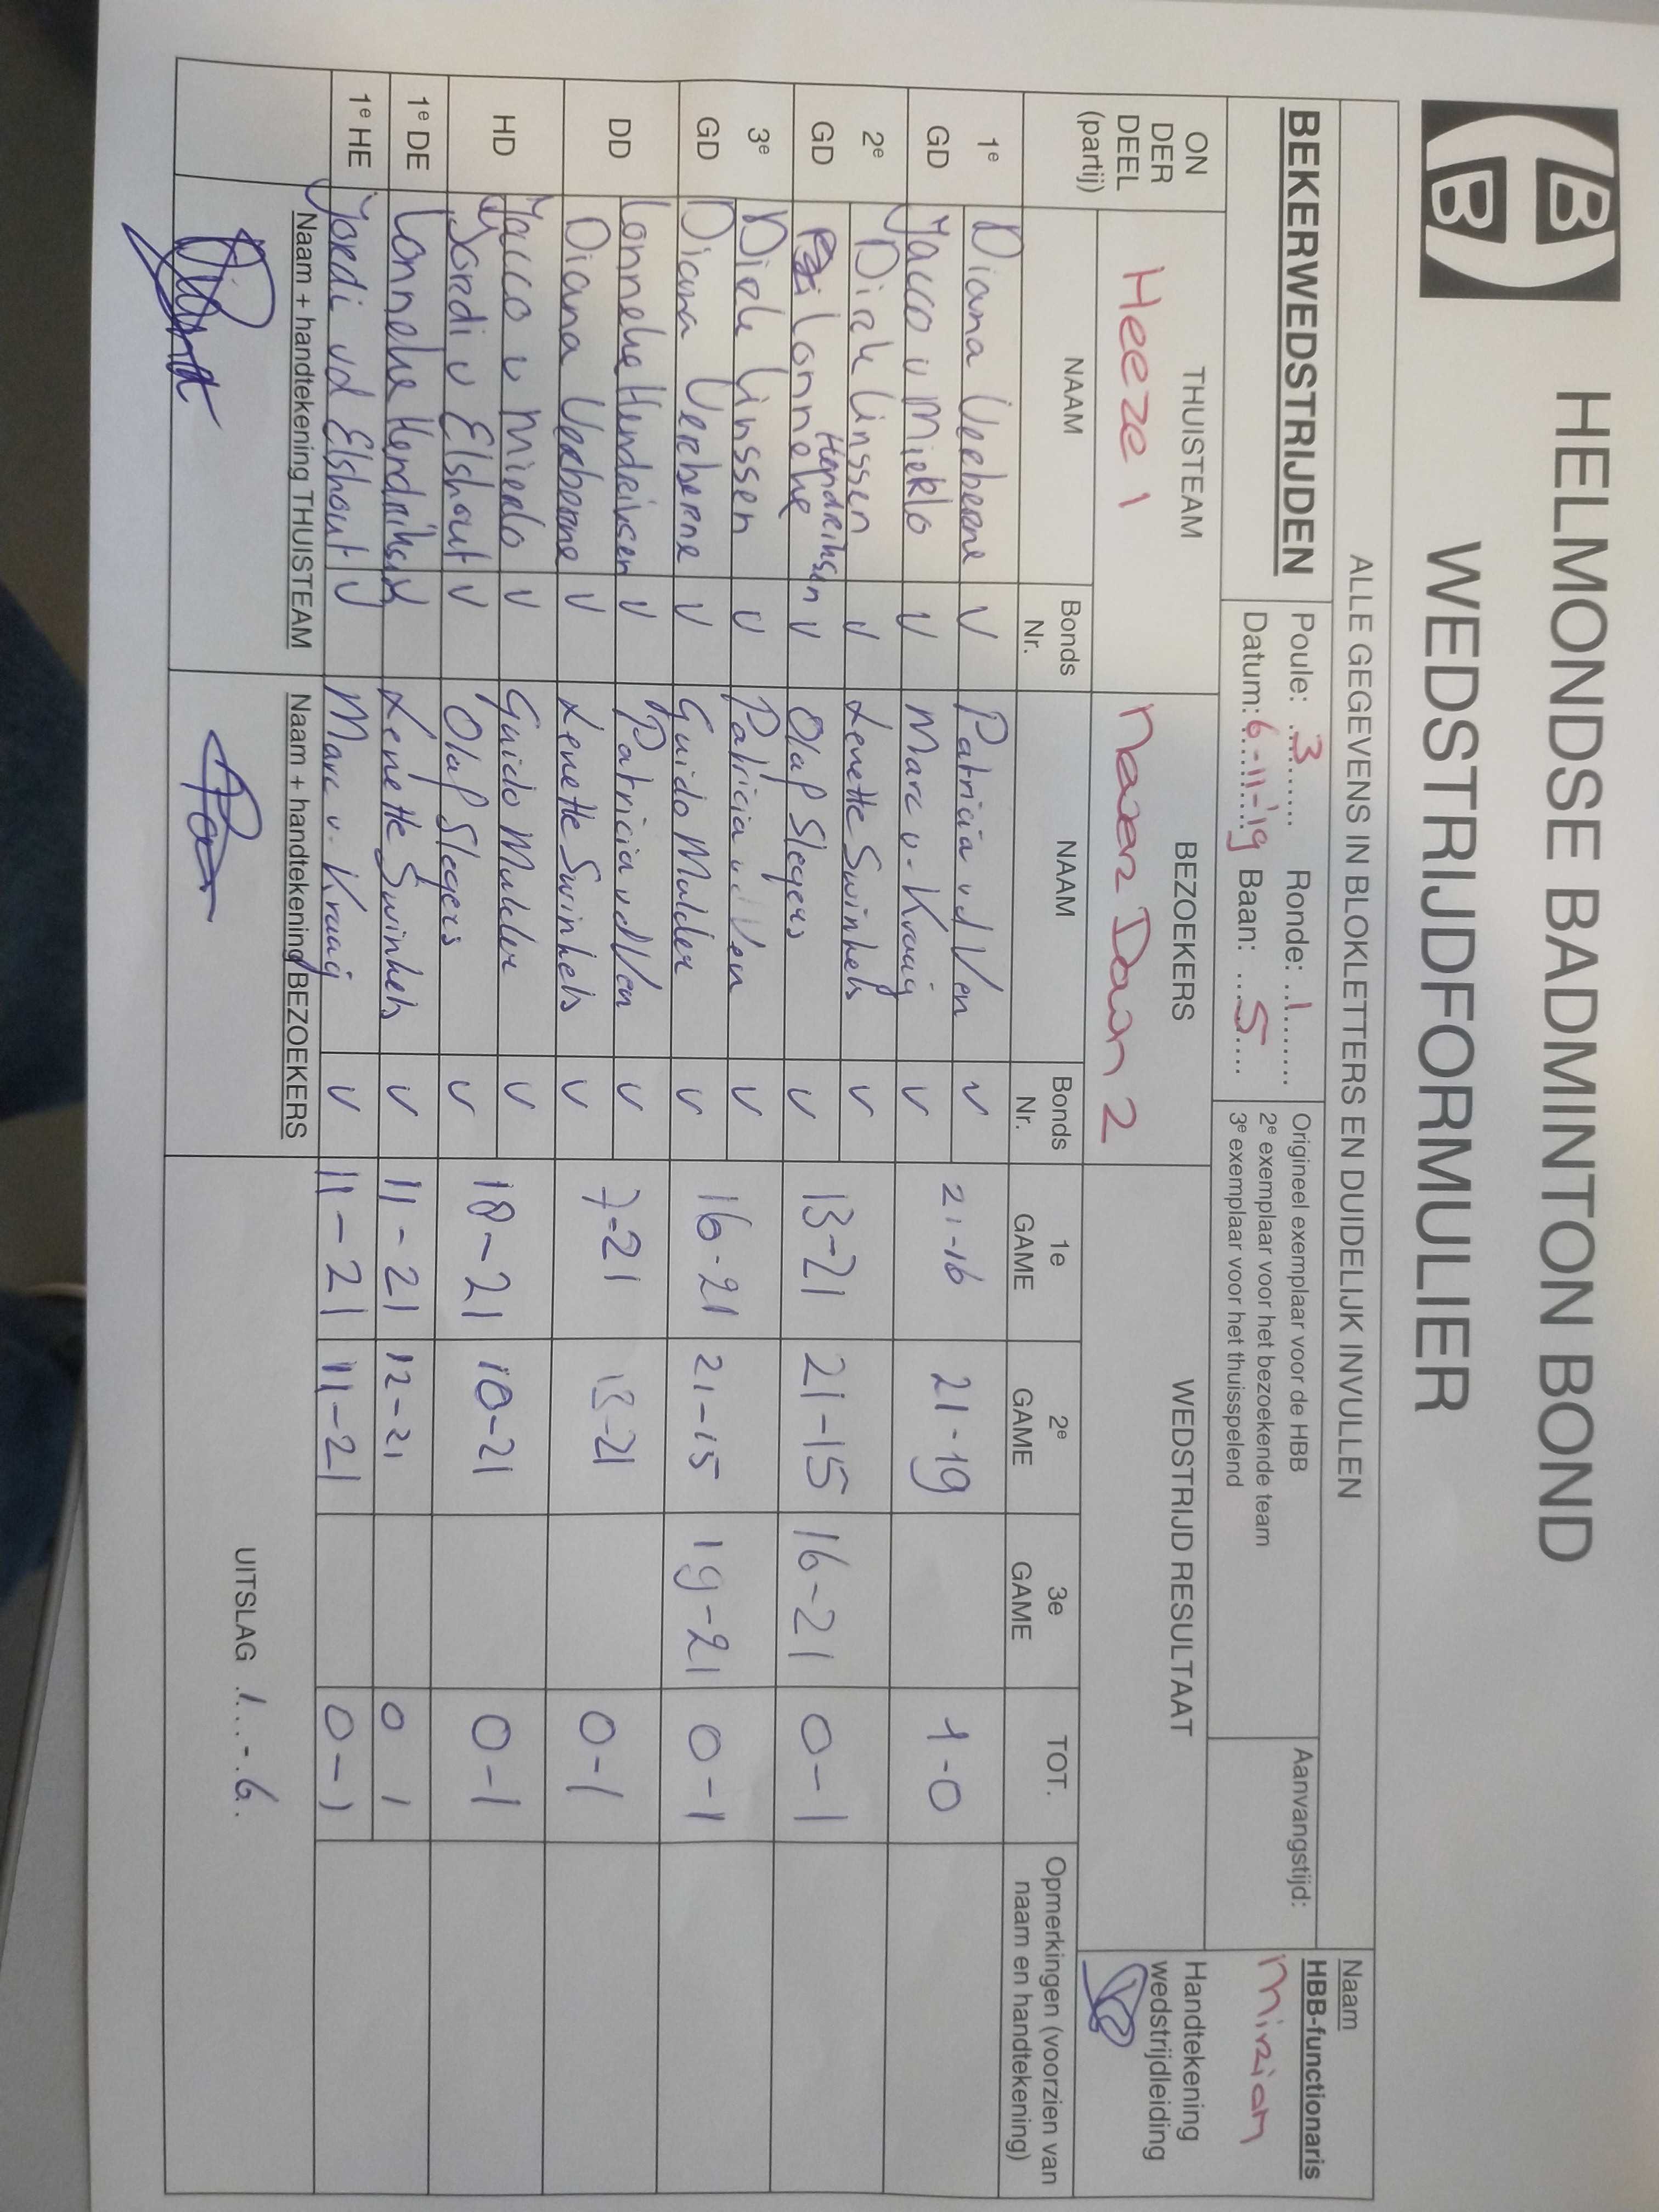 HELMONDSE BADMINTON BOND
WEDSTRIJDFORMULIER
ALLE GEGEVENS IN BLOKLETTERS EN DUIDELIJK INVULLEN
Naam
HBB-functionaris
Miriam
BEKERWEDSTRIJDEN
Poule: 3 Ronde: 1
Datum: 6-11-'19 Baan: 5
Origineel exemplaar voor de HBB
2e exemplaar voor het bezoekende team
3e exemplaar voor het thuisspelend
Aanvangstijd:
ON DER DEEL (partij)
THUISTEAM
Heeze 1
BEZOEKERS
Never Down 2
WEDSTRIJD RESULTAAT
Handtekening wedstrijdleiding
NAAM Bonds Nr. NAAM Bonds Nr. 1e GAME 2e GAME 3e GAME TOT. Opmerkingen (voorzien van naam en handtekening)
1e GD Diana Verberne V Patricia vd Ven V 21-16 21-19 1-0
Jacco v Mierlo V Marc v. Kraaij V
2e GD Dirk Linssen V Lenette Swinkels V 13-21 21-15 16-21 0-1
Lonneke Hendriksen V Olaf Slegers V
3e GD Dirk Linssen V Patricia v.d Ven V 16-21 21-15 19-21 0-1
Diana Verberne V Guido Mulder V
DD Lonneke Hendriksen V Patricia vd Ven V 7-21 13-21 0-1
Diana Verberne V Lenette Swinkels V
HD Jacco v Mierlo V Guido Mulder V 18-21 10-21 0-1
Jordi v Elshout V Olaf Slegers V
1e DE Lonneke Hendriksen V Lenette Swinkels V 11-21 12-21 0 1
1e HE Jordi vd Elshout V Marc v. Kraaij V 11-21 11-21 0-1
Naam + handtekening THUISTEAM
Naam + handtekening BEZOEKERS
UITSLAG 1 - 6